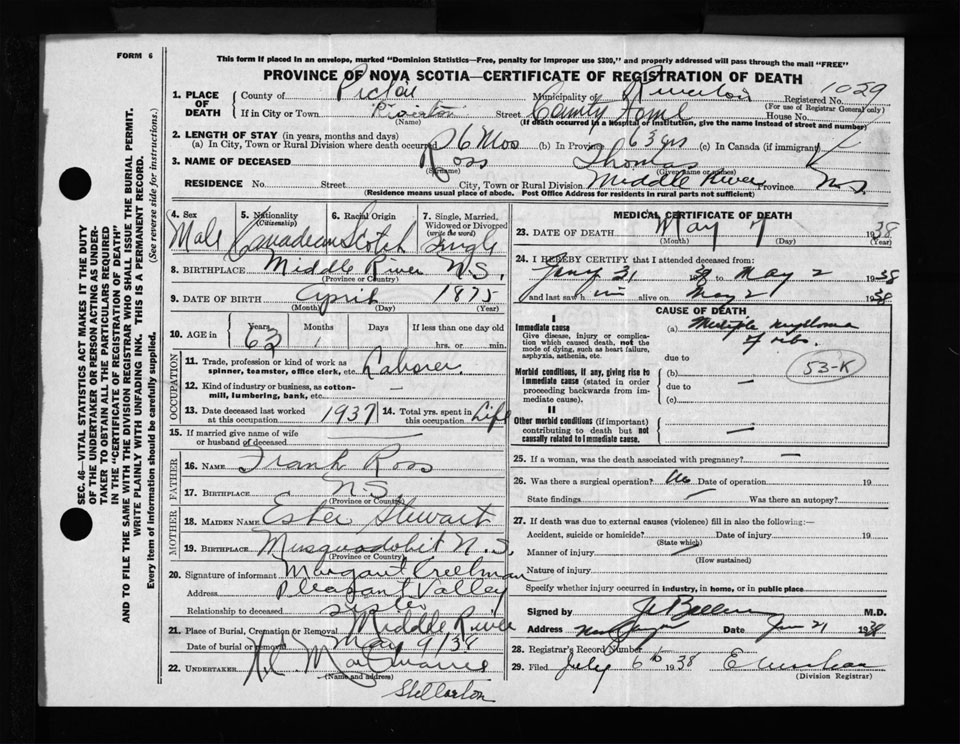 FORM 6
This form if placed in an envelope, marked "Dominion Statistics—Free, penalty for improper use $300," and properly addressed will pass through the mail "FREE"
PROVINCE OF NOVA SCOTIA—CERTIFICATE OF REGISTRATION OF DEATH
1. PLACE OF DEATH
County of Pictou Municipality of Riverton Registered No. 1029
(For use of Registrar General only)
If in City or Town Riverton Street County Home House No.
(Name) (If death occurred in a hospital or institution, give the name instead of street and number)
2. LENGTH OF STAY (in years, months and days)
(a) In City, Town or Rural Division where death occurred 26 Mos (b) In Province 63 yrs (c) In Canada (if immigrant)
3. NAME OF DECEASED Ross Thomas
(Surname) (Given name or names)
RESIDENCE No. Street City, Town or Rural Division Middle River Province N.S.
(Residence means usual place of abode. Post Office Address for residents in rural parts not sufficient)
4. Sex Male
5. Nationality (Citizenship) Canadian
6. Racial Origin Scotch
7. Single, Married, Widowed or Divorced (write the word) Single
8. BIRTHPLACE Middle River N.S.
(Province or Country)
9. DATE OF BIRTH April 1875
(Month) (Day) (Year)
10. AGE in Years 63 Months 1 Days If less than one day old hrs. or min.
OCCUPATION
11. Trade, profession or kind of work as spinner, teamster, office clerk, etc. Laborer
12. Kind of industry or business, as cotton-mill, lumbering, bank, etc. —
13. Date deceased last worked at this occupation 1937
14. Total yrs. spent in this occupation Life
15. If married give name of wife or husband of deceased —
FATHER
16. NAME Frank Ross
17. BIRTHPLACE N.S.
(Province or Country)
MOTHER
18. MAIDEN NAME Ester Stewart
19. BIRTHPLACE Musquodobit N.S.
(Province or Country)
20. Signature of informant Margaret Creelman
Address Pleasant Valley
Relationship to deceased sister
21. Place of Burial, Cremation or Removal Middle River
Date of burial or removal May 9/38
22. UNDERTAKER
(Name and address)
Stellarton
MEDICAL CERTIFICATE OF DEATH
23. DATE OF DEATH May 7 1938
(Month) (Day) (Year)
24. I HEREBY CERTIFY that I attended deceased from:
Jany 31 38 to May 2 1938
and last saw him alive on May 2 1938
CAUSE OF DEATH
I
Immediate cause
Give disease, injury or complication which caused death, not the mode of dying, such as heart failure, asphyxia, asthenia, etc.
(a) Multiple myelloma
of ribs.
due to
53-K
Morbid conditions, if any, giving rise to immediate cause (stated in order proceeding backwards from immediate cause).
(b) —
due to
(c)
II
Other morbid conditions (if important) contributing to death but not causally related to immediate cause.
—
25. If a woman, was the death associated with pregnancy? —
26. Was there a surgical operation? No Date of operation 19
State findings Was there an autopsy?
27. If death was due to external causes (violence) fill in also the following:—
Accident, suicide or homicide? Date of injury 19
(State which)
Manner of injury
(How sustained)
Nature of injury
Specify whether injury occurred in industry, in home, or in public place
Signed by M.D.
Address New Glasgow Date Jun 21 1938
28. Registrar's Record Number
29. Filed July 6th 1938
(Division Registrar)
SEC. 46—VITAL STATISTICS ACT MAKES IT THE DUTY
OF THE UNDERTAKER OR PERSON ACTING AS UNDER-
TAKER TO OBTAIN ALL THE PARTICULARS REQUIRED
IN THE "CERTIFICATE OF REGISTRATION OF DEATH"
AND TO FILE THE SAME WITH THE DIVISION REGISTRAR WHO SHALL ISSUE THE BURIAL PERMIT.
WRITE PLAINLY WITH UNFADING INK. THIS IS A PERMANENT RECORD.
Every item of information should be carefully supplied. (See reverse side for instructions.)